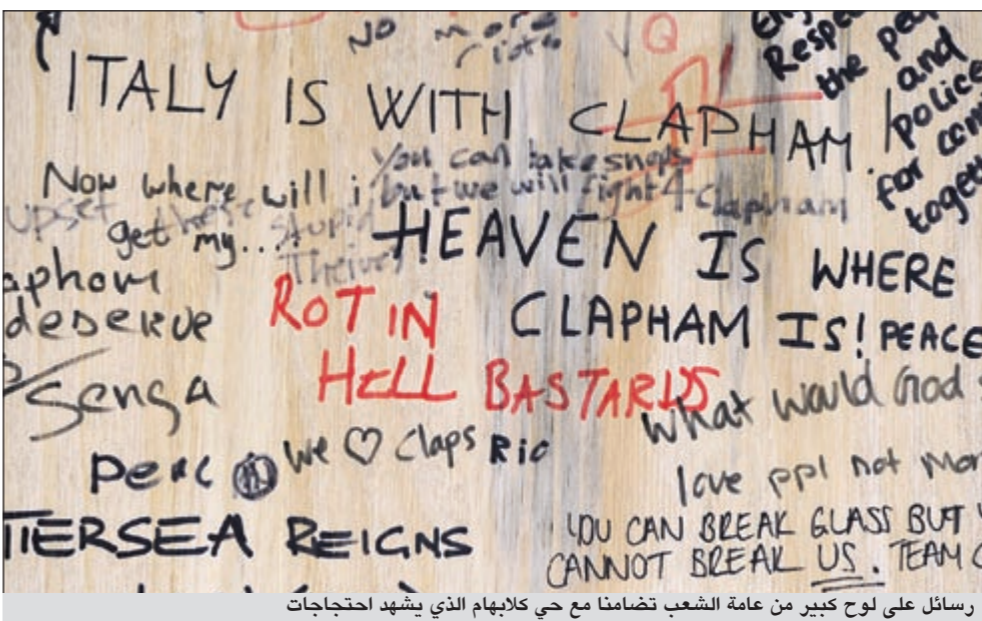 NO more
riots
Q
Respe
the peo
and
police
for com
togeth
ITALY IS WITH CLAPHAM
You can take shops
but we will fight 4 Clapham
Now where will i
get my....
upset these stupid
Thieives
HEAVEN IS WHERE
CLAPHAM IS! PEACE
apham
deserve
ROT IN
HELL BASTARDS
Senga
What would God
Peac
We ♡ Claps
Ric
love ppl not
TERSEA REIGNS
YOU CAN BREAK GLASS BUT
CANNOT BREAK US. TEAM C
رسائل على لوح كبير من عامة الشعب تضامنا مع حي كلابهام الذي يشهد احتجاجات